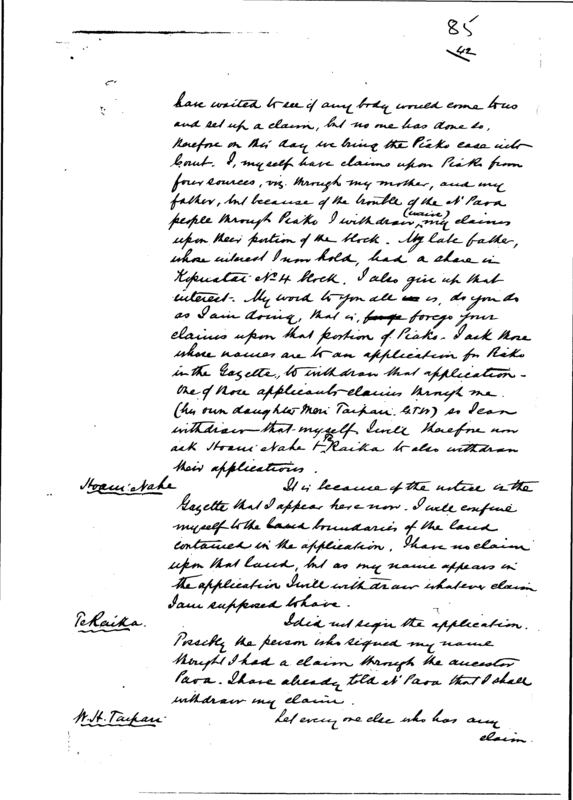 85
42
have waited to see if any body would come to us
and set up a claim, but no one has done so,
therefore on this day we bring the Piako case into
Court. I, myself have claims upon Piako from
four sources, viz. through my mother, and my
father, but because of the trouble of the N' Paoa
people through Piako I withdraw (waive) my claims
upon their portion of the block. My late father,
whose interest I now hold, had a share in
Kopuatai No 4 block. I also give up that
interest. My word to you all is, do you do
as I am doing, that is, forego your
claims upon that portion of Piako. I ask those
whose names are to an application for Piako
in the Gazette, to withdraw that application -
One of those applicants claims through me
(his own daughter Meri Taipari) so I can
withdraw that myself. I will therefore now
ask Hoani Nahe & Te Raika to also withdraw
their applications.
Hoani Nahe It is because of the notice in the
Gazette that I appear here now. I will confine
myself to the boundaries of the land
contained in the application. I have no claim
upon that land, but as my name appears in
the application I will withdraw whatever claim
I am supposed to have.
Te Raika. I did not sign the application.
Possibly the person who signed my name
thought I had a claim through the ancestor
Paoa. I have already told N' Paoa that I shall
withdraw my claim.
W. H. Taipari Let every one else who has any
claim.